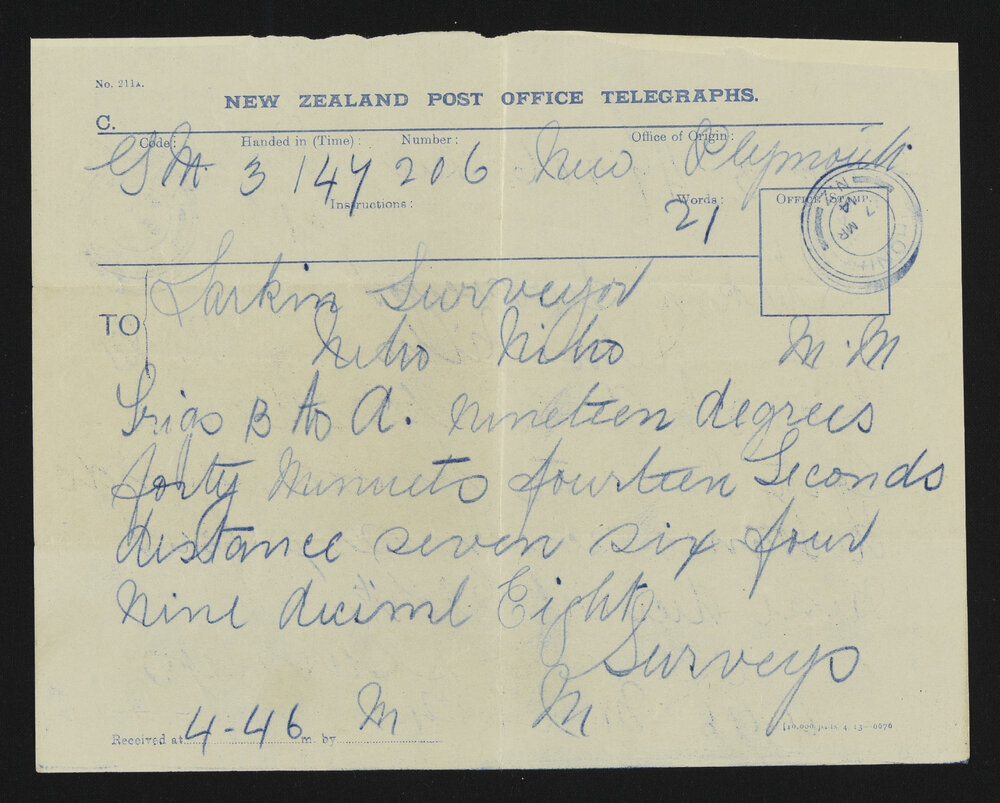 No. 211A.
NEW ZEALAND POST OFFICE TELEGRAPHS.
C.
Code: Handed in (Time): Number: Office of Origin:
GM 3 147 206 New Plymouth
Instructions: Words: OFFICE STAMP.
21
N.Z.
7 MR
14
TO
Larkin Surveyor
Niho Niho M.M
Trigs B to A. nineteen degrees
forty Minuets fourteen Seconds
distance seven six four
nine deciml Eight
Surveys
Received at 4-46 m. by M M